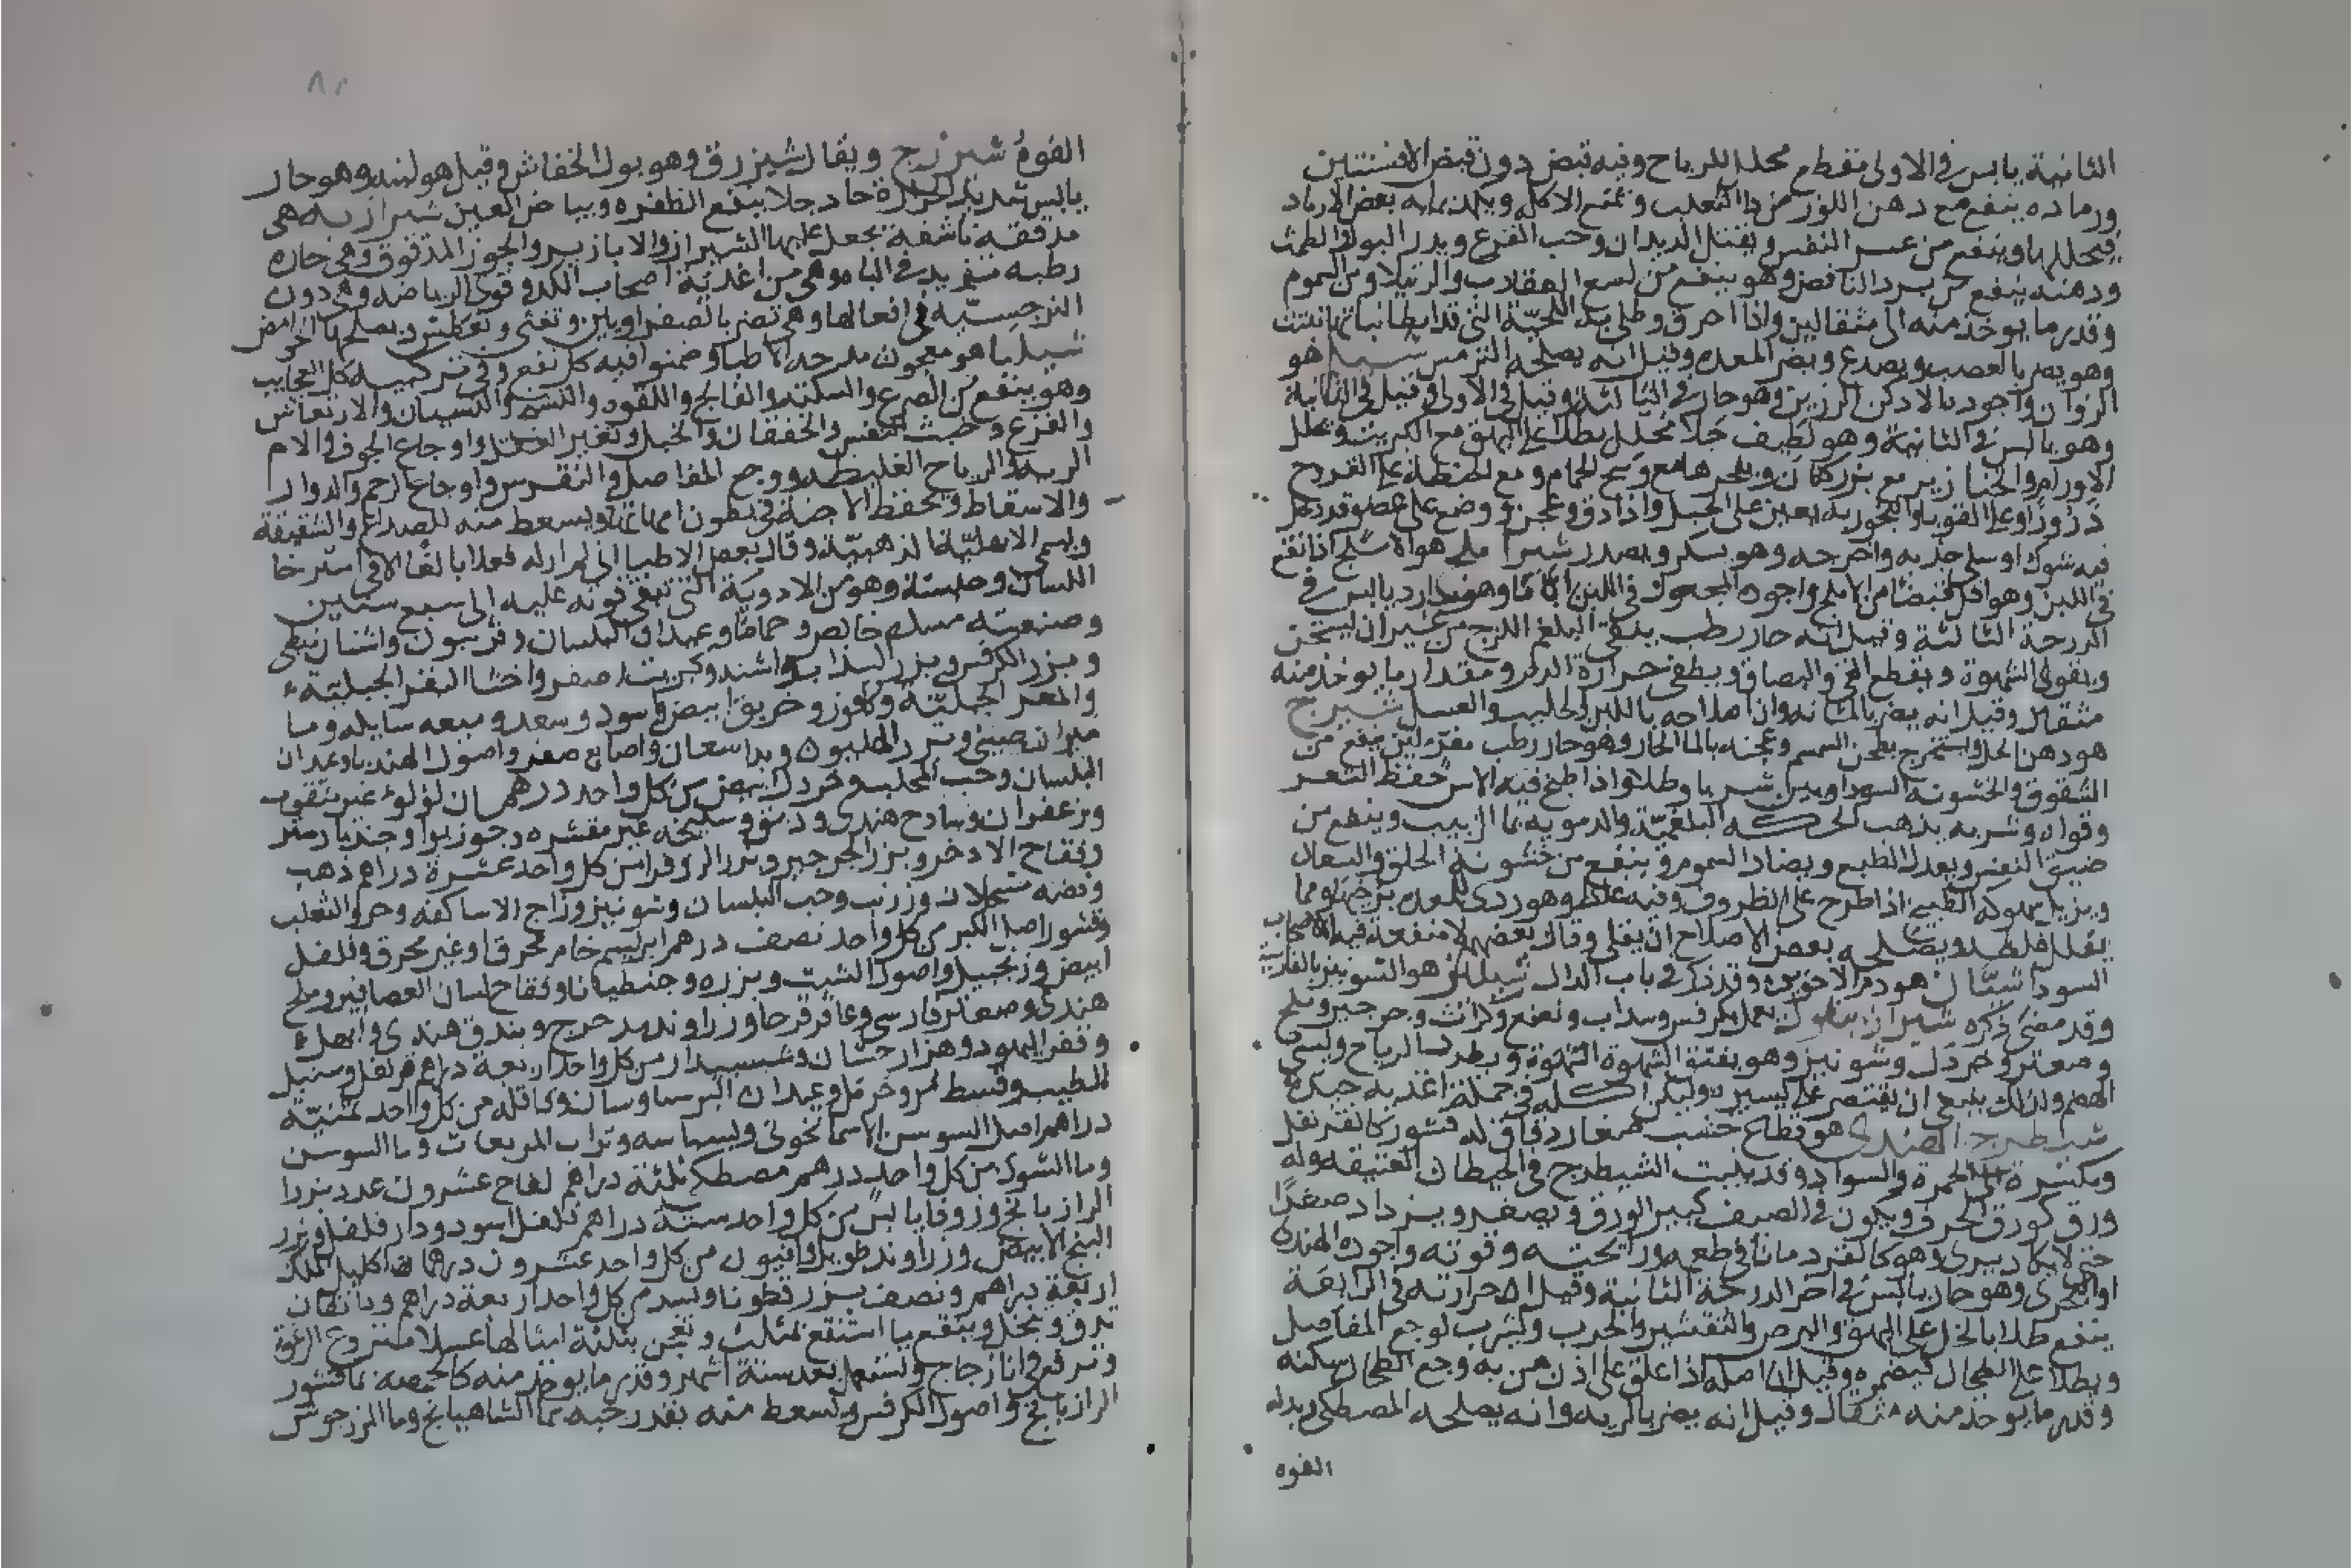 الثانية يابس في الاولى مقطع محلل للرياح وفيه قبض دون قبض الافسنتين
ورماده ينفع مع دهن اللوز من داء الثعلب ويمنع الاكله ويكمد بمايه بعض الارماد
فيحللها وينفع من عسر النفس ويقتل الديدان وحب القرع ويدر البول والطمث
ودهنه ينفع من برد النافض وهو ينفع من لسع العقارب والرتيلا ومن السموم
وقدر ما يوخذ منه الى مثقالين واذا احرق وطلي به اللحية التي قد ابطا نباتها نبتت
وهو يضر بالعصب ويصدع ويضر المعده وقيل انه يصلحه الترمس شيلم هو
الزوان واجوده الادكن الرزين وهو حار في الثالثة وقيل في الاولى وقيل في الثانية
وهو يابس في الثانية وهو لطيف جلا محلل يطلا على البهق مع الكبريت ويحلل
الاورام والخنازير مع بزر كتان ويفجرها مع وسخ الحمام ومع الحنطة على القروح
ذرورا وعلى القوبا والبخور به يعين على الحبل واذا دق وعجن ووضع على عضو قد دخل
فيه شوك او سلى جذبه واخرجه وهو يسكر ويصدر شير املج هو الاملج اذا نقع
في اللبن وهو اقل قبضا من الاملج واجوده المجعول في اللبن اياما وهو بارد يابس في
الدرجة الثالثة وقيل انه حار رطب ينقي البلغم اللزج من غير ان يسخن
ويقوي الشهوة ويقطع القي والبصاق ويطفي حرارة الدم ومقدار ما يوخذ منه
مثقال وقيل انه يضر بالمثانه وان اصلاحه باللبن الحليب والعسل شيرج
هو دهن الحل واستخرج بطحن السمسم وعجنه بالما الحار وهو حار رطب مغر ملين ينفع من
الشقوق والخشونه السوداويين شربا وطلا واذا طبخ فيه الاس حفظ الشعر
وقواه وشربه يذهب الحكه البلغمية والدمويه بما الزبيب وينفع من
ضيق النفس ويعدل الطبع ويضاد السموم وينفع من خشونة الحلق والسعال
ويزيل سهوكه الطبيخ اذا طرح على الظروف وفيه غلظ وهو ردي للمعده يرخيها ومما
يقلل غلظه ويصلحه بعض الاصلاح ان يغلي وقال بعضهم لا منفعة فيه لاصحاب
السودا شيان هو دم الاخوين وقد ذكر في باب الدال شينيز هو الشونيز بالفارسية
وقد مضى ذكره شيراز بقول يعمل بكرفس وسداب ونعنع وكراث وجرجير وملح
وصعتر وخردل وشونيز وهو يفتق الشهوة ويطرد الرياح ويسي
الهضم ولذلك ينبغي ان يقتصر على يسير وليكن اكله في جملة اغذيه جيدة
شيطرج الهندي هو قطاع خشب صغار دقاق له قشور كالقرنفل
ومكسره الى الحمرة والسواد وقد ينبت الشيطرج في الحيطان العتيقه وله
ورق كورق الحرف ويكون في الصيف كبير الورق ويصغر ويزداد صغرا
حتى لا يكاد يرى وهو كالقردمانا في طعمه ورائحته وقوته واجوده الهندي
او البحري وهو حار يابس في اخر الدرجة الثانية وقيل ان حرارته في الرابعة
ينفع طلا بالخل على البهق والبرص والتقشير والجرب ويشرب لوجع المفاصل
ويطلا على الطحال فيضمره وقيل ان اصله اذا علق على اذن من به وجع الطحال سكنه
وقدر ما يوخذ منه مثقال وقيل انه يضر بالريه وانه يصلحه المصطكى وبدله
الفوه
٨١
الفوه شيرزج ويقال شيزرق وهو بول الخفاش وقيل هو لبنه وهو حار
يابس شديد الحرارة حاد جلا ينفع الظفره وبياض العين شيرازيه هي
مدققه ناشفة يجعل عليها الشيراز والابازير والجوز المدقوق وهي حاره
رطبه تزيد في الباه وهي من اغذية اصحاب الكد وقوى الرياضه وهي دون
النرجسية في افعالها وهي تضر بالصفراويين وتغثي وتعطش ويصلحها الحوامض
شيلثا هو معجون مدحه الاطبا وضمنوا فيه كل نفع وفي تركيبه كل العجايب
وهو ينفع من الصرع والسكته والفالج واللقوه والنسيان والارتعاش
والفزع وخبث النفس والخفقان والخبل وتغير العقل واوجاع الجوف والام
الريه والرياح الغليظه ووجع المفاصل والنقرس واوجاع الرحم والدوار
والاسقاط ويحفظ الاجنة في بطون امهاتها ويسعط منه للصداع والشقيقة
ويسمى الذهبية وقال بعض الاطبا اني لم ار له فعلا بالغا الا في استرخا
اللسان وحبسته وهو من الادوية التي تبقى قوته عليه الى سبع سنين
وصنعته مسك خالص وحماما وعيدان البلسان وفربيون واشنان نبطي
وبزر الكرفس وبزر السذاب واشنه وكبريت اصفر واخثا البقر الجبلية
والمعز الجبلية وكافور وخربق ابيض واسود وسعد وميعه سايله وما
ميران صيني وبزر الهليون وبداسعان واصابع صفر واصول الهندبا وعيدان
البلسان وحب المحلب وخردل ابيض من كل واحد درهمان لؤلؤ غير مثقوب
وزعفران وساذج هندي ودبق وسليخه غير مقشره وجوزبوا وجندبادستر
وفقاح الاذخر وبزر الجرجير وبزر الروفرا من كل واحد عشرة دراهم ذهب
وفضه مسحولان وزرنب وحب البلسان وشونيز وزاج الاساكفه وخرو الثعلب
وقشور اصل الكبر من كل واحد نصف درهم ابريسم خام محرق او غير محرق وفلفل
ابيض وزنجبيل واصول الشبت وبزره وجنطيانا وفقاح لسان العصافير وملح
هندي وصعتر فارسي وعاقرقرحا وزراوند مدحرج وبندق هندي وابهل
وقفر اليهود وهزارجشان وشسبندار من كل واحد اربعة دراهم قرنفل وسنبل
الطيب وقسط مر وحرمل وعيدان البرسياوسان وقاقله من كل واحد ثمنية
دراهم اصل السوسن الاسمانجوني وبسباسه وتراب المربعات وما السوسن
وما الشوك من كل واحد درهم مصطكى ثلثة دراهم لفاح عشرون عدد بزر
الرازيانج وزوفا يابس من كل واحد ستة دراهم فلفل اسود ودار فلفل وبزر
البنج الابيض وزراوند طويل وافيون من كل واحد عشرون درهما اكليل الملك
اربعة دراهم ونصف بزر قطونا وبسد من كل واحد اربعة دراهم ودانقان
يدق وينخل وينقع ما استنقع بمثلث وتعجن بثلثة امثالها عسلا منزوع الرغوة
وترفع في انا زجاج وتستعمل بعد ستة اشهر وقدر ما يوخذ منه كالحمصه بما قشور
الرازيانج واصول الكرفس ويسعط منه بقدر حبه بما الشاهبانج وما المرزجوش